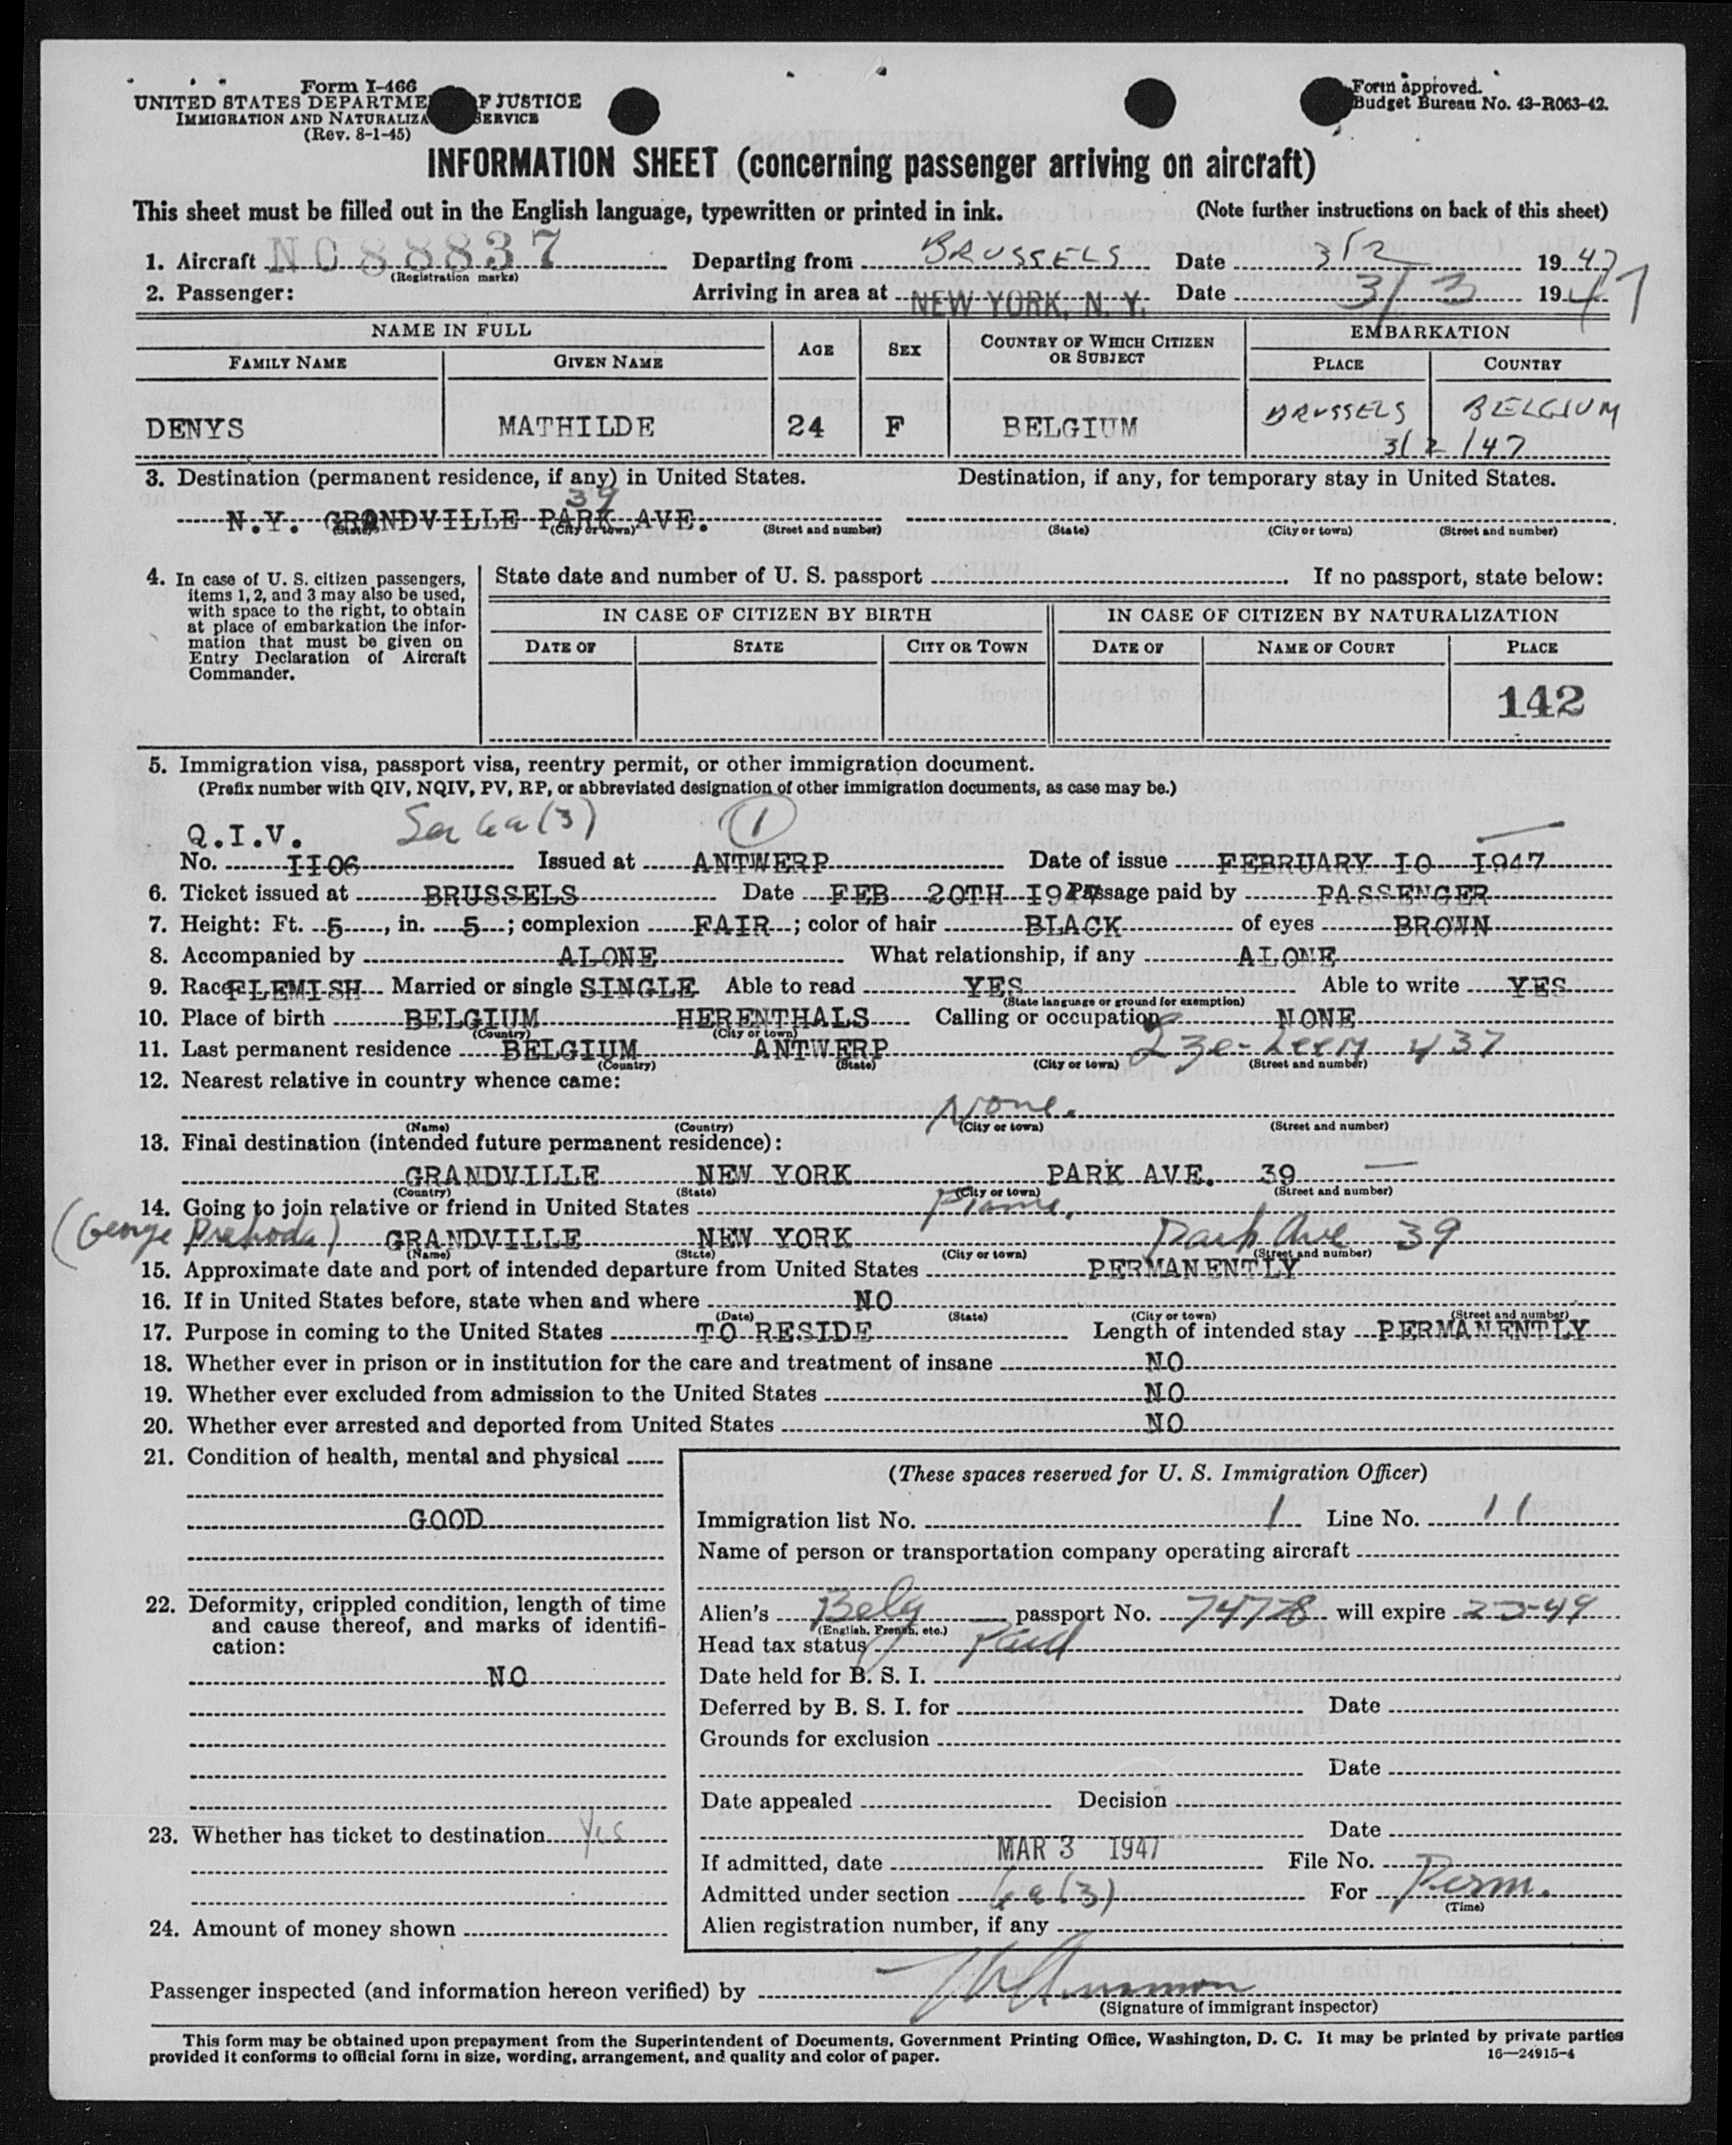 Form I-466
UNITED STATES DEPARTME F JUSTICE
IMMIGRATION AND NATURALIZA SERVICE
(Rev. 8-1-45)
Form approved.
Budget Bureau No. 43-R063-42.
INFORMATION SHEET (concerning passenger arriving on aircraft)
This sheet must be filled out in the English language, typewritten or printed in ink. (Note further instructions on back of this sheet)
1. Aircraft NC 88837 Departing from BRUSSELS Date 3/2 1947
(Registration marks)
2. Passenger: Arriving in area at NEW YORK, N. Y. Date 3/3 1947
NAME IN FULL AGE SEX COUNTRY OF WHICH CITIZEN OR SUBJECT EMBARKATION
FAMILY NAME GIVEN NAME PLACE COUNTRY
DENYS MATHILDE 24 F BELGIUM BRUSSELS BELGIUM
3/2/47
3. Destination (permanent residence, if any) in United States. Destination, if any, for temporary stay in United States.
39
N.Y. GRANDVILLE PARK AVE.
(State) (City or town) (Street and number) (State) (City or town) (Street and number)
4. In case of U. S. citizen passengers, items 1, 2, and 3 may also be used, with space to the right, to obtain at place of embarkation the infor-
mation that must be given on Entry Declaration of Aircraft Commander.
State date and number of U. S. passport If no passport, state below:
IN CASE OF CITIZEN BY BIRTH IN CASE OF CITIZEN BY NATURALIZATION
DATE OF STATE CITY OR TOWN DATE OF NAME OF COURT PLACE
142
5. Immigration visa, passport visa, reentry permit, or other immigration document.
(Prefix number with QIV, NQIV, PV, RP, or abbreviated designation of other immigration documents, as case may be.)
Q.I.V. 6a(3) 1
No. II06 Issued at ANTWERP Date of issue FEBRUARY IO I947
6. Ticket issued at BRUSSELS Date FEB 20TH I947 Passage paid by PASSENGER
7. Height: Ft. 5, in. 5; complexion FAIR; color of hair BLACK of eyes BROWN
8. Accompanied by ALONE What relationship, if any ALONE
9. Race FLEMISH Married or single SINGLE Able to read YES Able to write YES
(State language or ground for exemption)
10. Place of birth BELGIUM HERENTHALS Calling or occupation NONE
(Country) (City or town)
11. Last permanent residence BELGIUM ANTWERP 437
(Country) (State) (City or town) (Street and number)
12. Nearest relative in country whence came:
None.
(Name) (Country) (City or town) (Street and number)
13. Final destination (intended future permanent residence):
GRANDVILLE NEW YORK PARK AVE. 39
(Country) (State) (City or town) (Street and number)
14. Going to join relative or friend in United States
(George Prehoda) GRANDVILLE NEW YORK Park Ave 39
(Name) (State) (City or town) (Street and number)
15. Approximate date and port of intended departure from United States PERMANENTLY
16. If in United States before, state when and where NO
(Date) (State) (City or town) (Street and number)
17. Purpose in coming to the United States TO RESIDE Length of intended stay PERMANENTLY
18. Whether ever in prison or in institution for the care and treatment of insane NO
19. Whether ever excluded from admission to the United States NO
20. Whether ever arrested and deported from United States NO
21. Condition of health, mental and physical
GOOD
22. Deformity, crippled condition, length of time and cause thereof, and marks of identifi-
cation:
NO
23. Whether has ticket to destination Yes
24. Amount of money shown
(These spaces reserved for U. S. Immigration Officer)
Immigration list No. 1 Line No. 11
Name of person or transportation company operating aircraft
Alien's Belg passport No. 74728 will expire 2-3-49
(English, French, etc.)
Head tax status Paid
Date held for B. S. I.
Deferred by B. S. I. for Date
Grounds for exclusion
Date
Date appealed Decision
Date
If admitted, date MAR 3 1947 File No.
Admitted under section 6a(3) For Perm.
(Time)
Alien registration number, if any
Passenger inspected (and information hereon verified) by
(Signature of immigrant inspector)
This form may be obtained upon prepayment from the Superintendent of Documents, Government Printing Office, Washington, D. C. It may be printed by private parties
provided it conforms to official form in size, wording, arrangement, and quality and color of paper.
16—24915-4